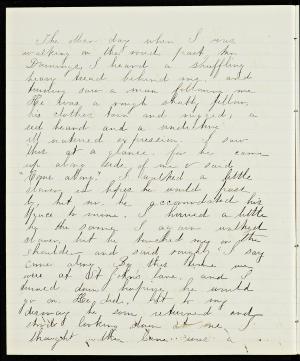 The other day when I was
walking on the road past
I heard a shuffling
heavy tread behind me, and
turning saw a man following me
He was a rough shabby fellow,
his clothes torn and ragged, a
red beard and a vindictive
ill natured expression. I saw
this at a glance, for he came
up along side of me & said
"Come along." I walked a little
slower in hopes he would pass
by, but no he accommodated his
pace to mine. I hurried a little
by the same, I again walked
slower, but he touched me on the
shoulder and said roughly "I say
come along" By this time we
were at lane, and I
turned down hoping he would
go on. He did, but to my
dismay he soon returned and
looking down at me, I
thought